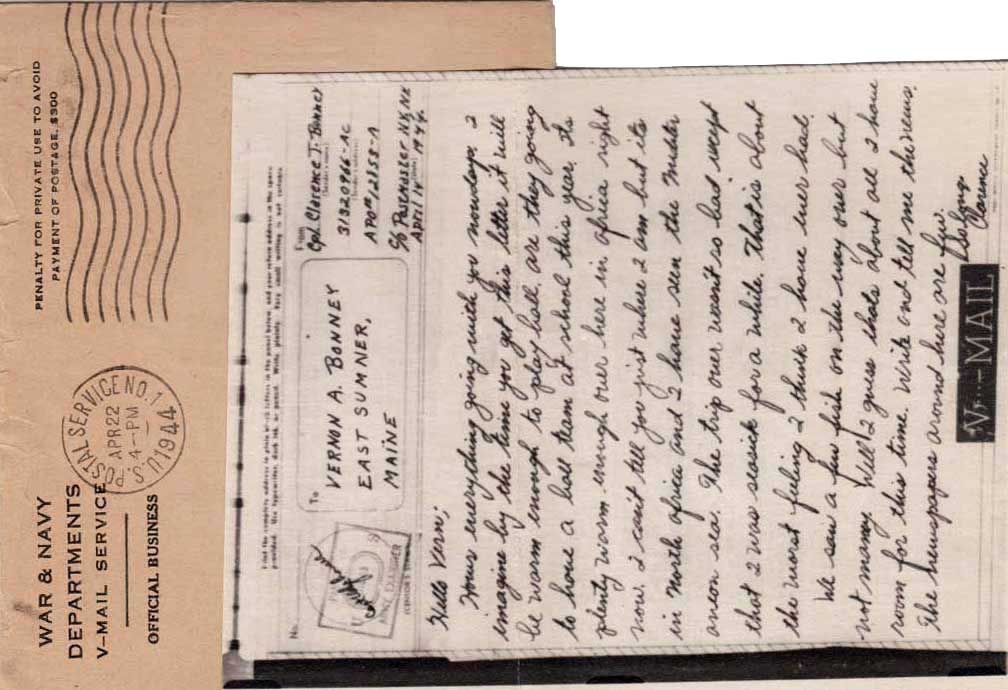 WAR & NAVY
DEPARTMENTS
V-MAIL SERVICE
OFFICIAL BUSINESS
U.S. POSTAL SERVICE NO. 1
APR 22
4-PM
1944
PENALTY FOR PRIVATE USE TO AVOID
PAYMENT OF POSTAGE, $300
Print the complete address in plain block letters in the panel below, and your return address in the space
provided. Use typewriter, dark ink, or pencil. Write plainly. Very small writing is not suitable.
No.
To
VERNON A. BONNEY
EAST SUMNER,
MAINE
From
Cpl. Clarence J. Bonney
(Sender's name)
31320966-AC
(Sender's address)
APO# 12355-A
C/o Postmaster NY, NY
April 14 1944
(Date)
ARMY EXAMINER
(CENSOR'S STAMP)
Hello Vern;
Hows everything going with you nowdays. I
imagine by the time you get this letter it will
be warm enough to play ball, are they going
to have a ball team at school this year. Its
plenty warm enough over here in africa right
now. I cant tell you just where I am but its
in North africa and I have seen the Mediter
anean sea. The trip over wasn't so bad except
that I was seasick for a while. That is about
the worst feeling I think I have ever had.
We saw a few fish on the way over but
not many. Well I guess thats about all I have
room for this time. Write and tell me the news.
The newspapers around here are few.
So long.
Clarence
V···-MAIL